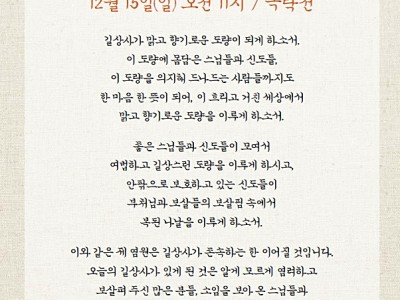 12월 15일(일) 오전 11시 / 극락전
길상사가 맑고 향기로운 도량이 되게 하소서.
이 도량에 몸담은 스님들과 신도들,
이 도량을 의지해 드나드는 사람들까지도
한 마음 한 뜻이 되어, 이 흐리고 거친 세상에서
맑고 향기로운 도량을 이루게 하소서.
좋은 스님들과 신도들이 모여서
여법하고 길상스런 도량을 이루게 하시고,
안팎으로 보호하고 있는 신도들이
부처님과 보살들의 보살핌 속에서
복된 나날을 이루게 하소서.
이와 같은 제 염원은 길상사가 존속하는 한 이어질 것입니다.
오늘의 길상사가 있게 된 것은 알게 모르게 염려하고
보살펴 주신 많은 분들, 소임을 보아 온 스님들과